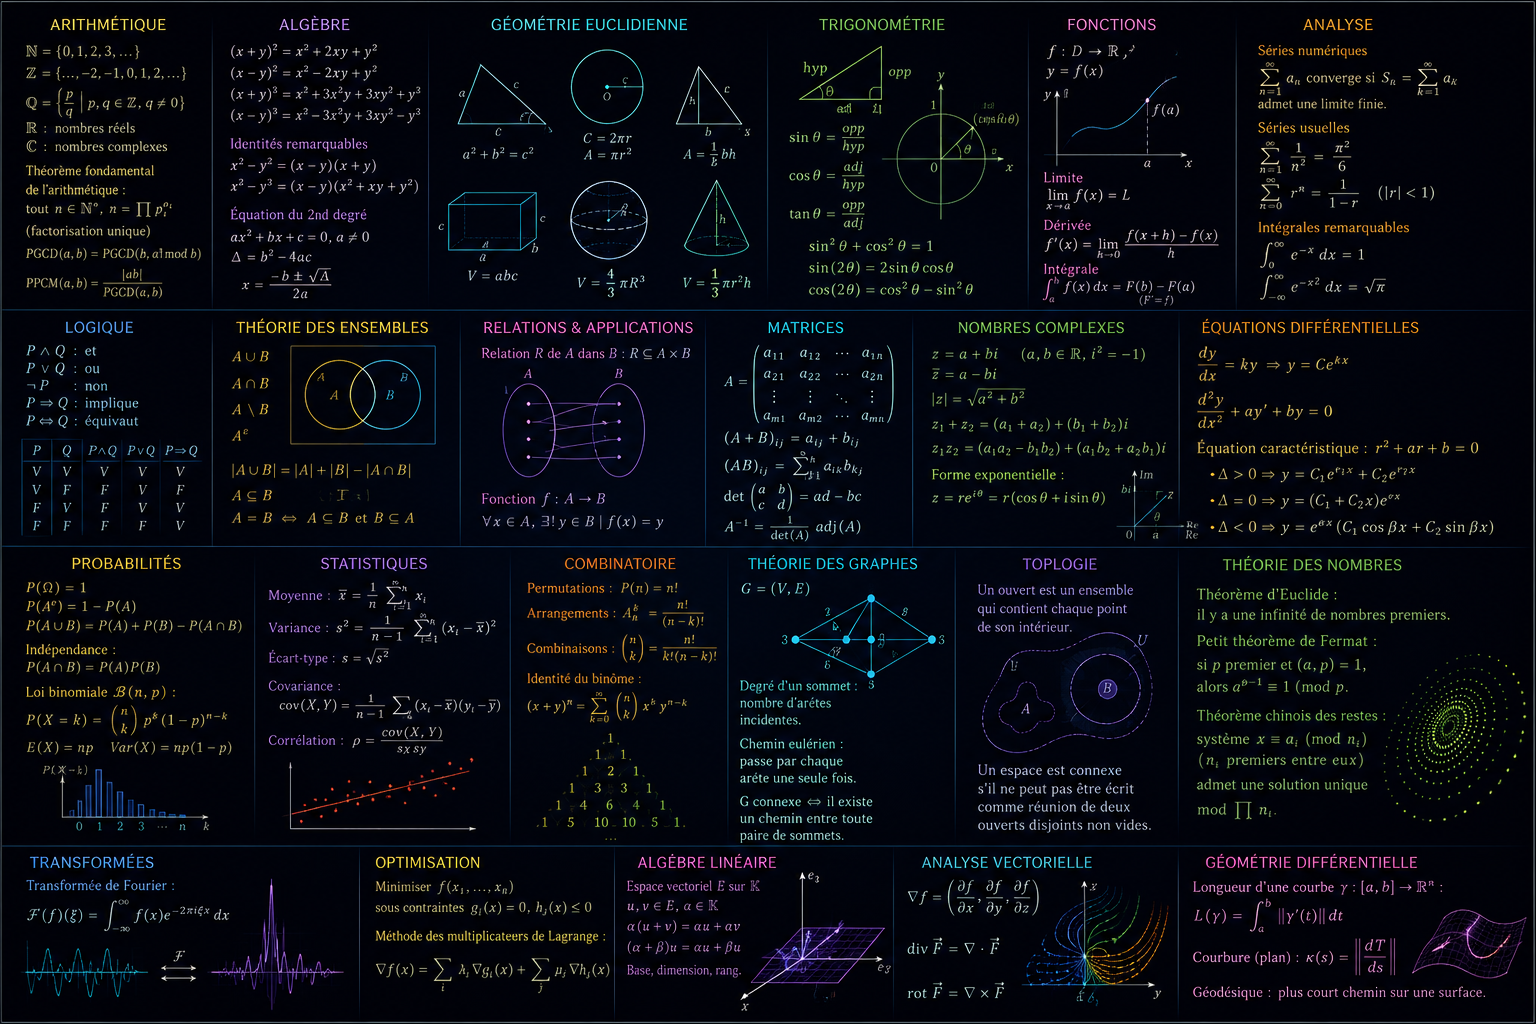 ARITHMÉTIQUE
ℕ = {0, 1, 2, 3, …}
ℤ = {…, −2, −1, 0, 1, 2, …}
ℚ = { p/q | p, q ∈ ℤ, q ≠ 0}
ℝ : nombres réels
ℂ : nombres complexes
Théorème fondamental
de l'arithmétique :
tout n ∈ ℕ*, n = ∏ pᵢ^αᵢ
(factorisation unique)
PGCD(a, b) = PGCD(b, a mod b)
PPCM(a, b) = |ab| / PGCD(a, b)
ALGÈBRE
(x + y)² = x² + 2xy + y²
(x − y)² = x² − 2xy + y²
(x + y)³ = x³ + 3x²y + 3xy² + y³
(x − y)³ = x³ − 3x²y + 3xy² − y³
Identités remarquables
x² − y² = (x − y)(x + y)
x² − y³ = (x − y)(x² + xy + y²)
Équation du 2nd degré
ax² + bx + c = 0, a ≠ 0
Δ = b² − 4ac
x = (−b ± √Δ) / 2a
GÉOMÉTRIE EUCLIDIENNE
a c
C
a² + b² = c²
O
C = 2πr
A = πr²
h
b
A = 1/2 bh
c c
a b
V = abc
V = 4/3 πR³
h
V = 1/3 πr²h
TRIGONOMÉTRIE
hyp opp
θ
sin θ = opp/hyp
cos θ = adj/hyp
tan θ = opp/adj
y
1
θ
0 x
sin² θ + cos² θ = 1
sin (2θ) = 2 sin θ cos θ
cos (2θ) = cos² θ − sin² θ
FONCTIONS
f : D → ℝ
y = f(x)
y
f(a)
a x
Limite
lim x→a f(x) = L
Dérivée
f′(x) = lim h→0 (f(x + h) − f(x)) / h
Intégrale
∫ f(x) dx = F(b) − F(a)
(F′ = f)
ANALYSE
Séries numériques
∑ n=1 ∞ aₙ converge si Sₙ = ∑ k=1 ∞ aₖ
admet une limite finie.
Séries usuelles
∑ n=1 ∞ 1/n² = π²/6
∑ n=0 ∞ rⁿ = 1/(1 − r) (|r| < 1)
Intégrales remarquables
∫₀^∞ e^−x dx = 1
∫_−∞^∞ e^−x² dx = √π
LOGIQUE
P ∧ Q : et
P ∨ Q : ou
¬ P : non
P ⇒ Q : implique
P ⇔ Q : équivaut
P Q P∧Q P∨Q P⇒Q
V V V V V
V F F V F
F F F F V
F F F F V
THÉORIE DES ENSEMBLES
A ∪ B
A ∩ B
A \ B
Aᶜ
A B
A B
|A ∪ B| = |A| + |B| − |A ∩ B|
A ⊆ B
A = B ⇔ A ⊆ B et B ⊆ A
RELATIONS & APPLICATIONS
Relation R de A dans B : R ⊆ A × B
A B
Fonction f : A → B
∀x ∈ A, ∃! y ∈ B | f(x) = y
MATRICES
A =
a₁₁ a₁₂ ⋯ a₁ₙ
a₂₁ a₂₂ ⋯ a₂ₙ
⋮ ⋮ ⋱ ⋮
aₘ₁ aₘ₂ ⋯ aₘₙ
(A + B)ᵢⱼ = aᵢⱼ + bᵢⱼ
(AB)ᵢⱼ = ∑ aᵢₖbₖⱼ
det (a b c d) = ad − bc
A⁻¹ = 1/det(A) adj(A)
NOMBRES COMPLEXES
z = a + bi (a, b ∈ ℝ, i² = −1)
z̅ = a − bi
|z| = √(a² + b²)
z₁ + z₂ = (a₁ + a₂) + (b₁ + b₂)i
z₁z₂ = (a₁a₂ − b₁b₂) + (a₁b₂ + a₂b₁)i
Forme exponentielle :
z = re^iθ = r(cos θ + i sin θ)
Im
bi z
θ
0 a
Re
Re
ÉQUATIONS DIFFÉRENTIELLES
dy/dx = ky ⇒ y = Ce^kx
d²y/dx² + ay′ + by = 0
Équation caractéristique : r² + ar + b = 0
• Δ > 0 ⇒ y = C₁e^r₁x + C₂e^r₂x
• Δ = 0 ⇒ y = (C₁ + C₂x)e^rx
• Δ < 0 ⇒ y = e^αx (C₁ cos βx + C₂ sin βx)
PROBABILITÉS
P(Ω) = 1
P(Aᶜ) = 1 − P(A)
P(A ∪ B) = P(A) + P(B) − P(A ∩ B)
Indépendance :
P(A ∩ B) = P(A)P(B)
Loi binomiale ℬ(n, p) :
P(X = k) = (n k) pᵏ (1 − p)ⁿ⁻ᵏ
E(X) = np Var(X) = np(1 − p)
0 1 2 3 ⋯ n k
STATISTIQUES
Moyenne : x̅ = 1/n ∑ i=1 xᵢ
Variance : s² = 1/(n − 1) ∑ i=1 (xᵢ − x̅)²
Écart-type : s = √s²
Covariance :
cov(X, Y) = 1/(n−1) ∑ (xᵢ − x̅)(yᵢ − y̅)
Corrélation : ρ = cov(X, Y) / sx sy
COMBINATOIRE
Permutations : P(n) = n!
Arrangements : Aₙᵏ = n!/(n − k)!
Combinaisons : (n k) = n!/k!(n − k)!
Identité du binôme :
(x + y)ⁿ = ∑ k=0 ∞ (n k) xᵏ yⁿ⁻ᵏ
1
1 1
1 2 1
1 3 3 1
1 4 6 4 1
1 5 10 10 5 1
…
THÉORIE DES GRAPHES
G = (V, E)
8
3 3
Degré d'un sommet :
nombre d'arétes
incidentes.
Chemin eulérien :
passe par chaque
aréte une seule fois.
G connexe ⇔ il existe
un chemin entre toute
paire de sommets.
TOPLOGIE
Un ouvert est un ensemble
qui contient chaque point
de son intérieur.
U
A B
Un espace est connexe
s'il ne peut pas être écrit
comme réunion de deux
ouverts disjoints non vides.
THÉORIE DES NOMBRES
Théorème d'Euclide :
il y a une infinité de nombres premiers.
Petit théorème de Fermat :
si p premier et (a, p) = 1,
alors aᵖ⁻¹ ≡ 1 (mod p.
Théorème chinois des restes :
système x ≡ aᵢ (mod nᵢ)
(nᵢ premiers entre eux)
admet une solution unique
mod ∏ nᵢ.
TRANSFORMÉES
Transformée de Fourier :
ℱ(f)(ξ) = ∫_−∞^∞ f(x)e^−2πiξx dx
ℱ
OPTIMISATION
Minimiser f(x₁, …, xₙ)
sous contraintes gᵢ(x) = 0, hⱼ(x) ≤ 0
Méthode des multiplicateurs de Lagrange :
∇f(x) = ∑ᵢ λᵢ∇gᵢ(x) + ∑ⱼ μⱼ∇hⱼ(x)
ALGÈBRE LINÉAIRE
Espace vectoriel E sur 𝕂
u, v ∈ E, α ∈ 𝕂
α(u + v) = αu + αv
(α + β)u = αu + βu
Base, dimension, rang.
e₃
e₃
x
ANALYSE VECTORIELLE
∇f = (∂f/∂x, ∂f/∂y, ∂f/∂z)
div F⃗ = ∇ · F⃗
rot F⃗ = ∇ × F⃗
x
y
GÉOMÉTRIE DIFFÉRENTIELLE
Longueur d'une courbe γ : [a, b] → ℝⁿ :
L(γ) = ∫ₐᵇ ||γ′(t)|| dt
Courbure (plan) : κ(s) = ||dT/ds||
Géodésique : plus court chemin sur une surface.